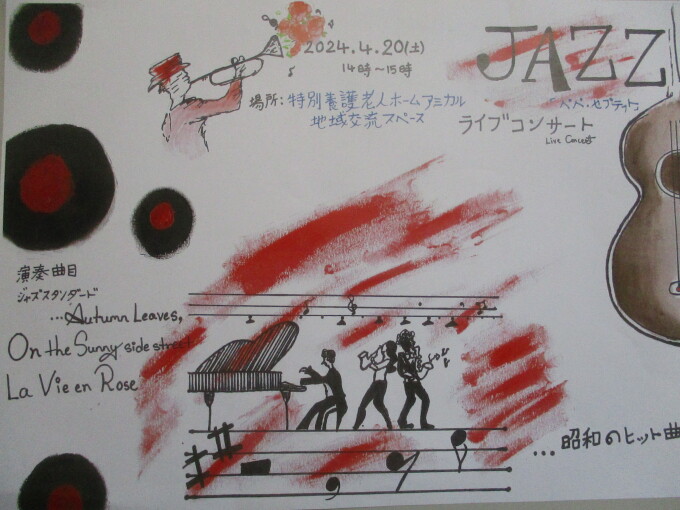 JAZZ
2024.4.20(土)
14時〜15時
場所:特別養護老人ホームアミカル
地域交流スペース
ペペ・セプテット
ライブコンサート
Live Concert
演奏曲目
ジャズスタンダード
...Autumn Leaves,
On the Sunny side street
La Vie en Rose
...昭和のヒット曲